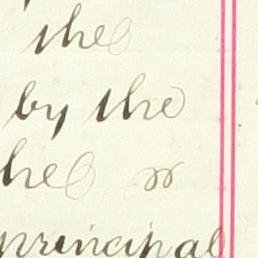 the
by the
he or
principal